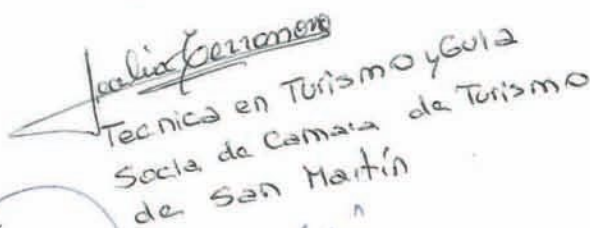 Tecnica en Turismo y Guia
Socia de Camara de Turismo
de San Martín